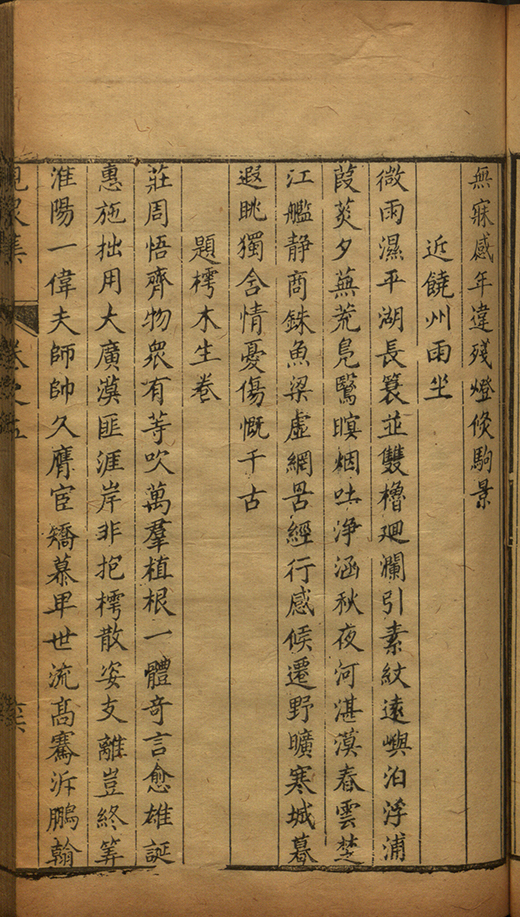 無寐感年違殘燈倏駒景
近饒州雨坐
微雨濕平湖長簑並雙櫓廻瀾引素紋遠嶼泊浮浦
葭菼夕蕪荒鳧鷖暝烟吐淨涵秋夜河湛漠春雲楚
江艦静商銖魚梁虚網罟經行感候遷野曠寒城暮
遐眺獨含情憂傷慨千古
題樗木生卷
莊周悟齊物衆有等吹萬羣植根一體奇言愈雄誕
惠施拙用大廣漠匪涯岸非抱樗散姿支離豈終筭
淮陽一偉夫師帥久膺宦矯慕卑世流高騫泝鵬翰